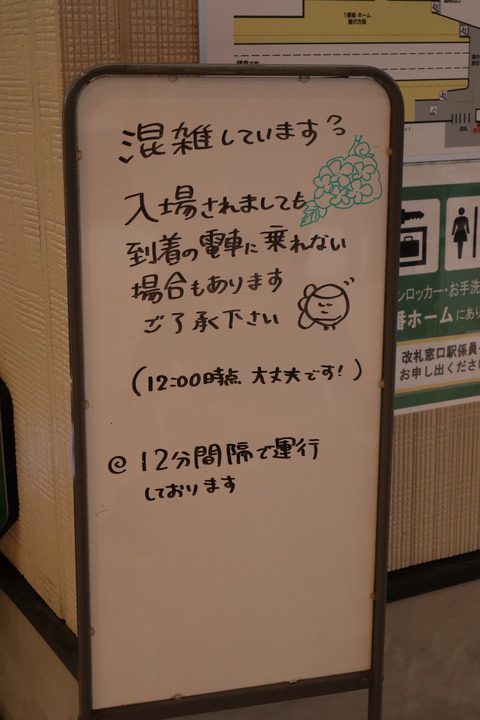 1番線 ホーム
藤沢方面
混雑しています
入場されましても
到着の電車に乗れない
場合もあります
ご了承下さい
(12:00時点 大丈夫です!)
@ 12分間隔で運行
しております
ンロッカー・お手洗
番ホームにあり
改札窓口駅係員
お申し出くださ